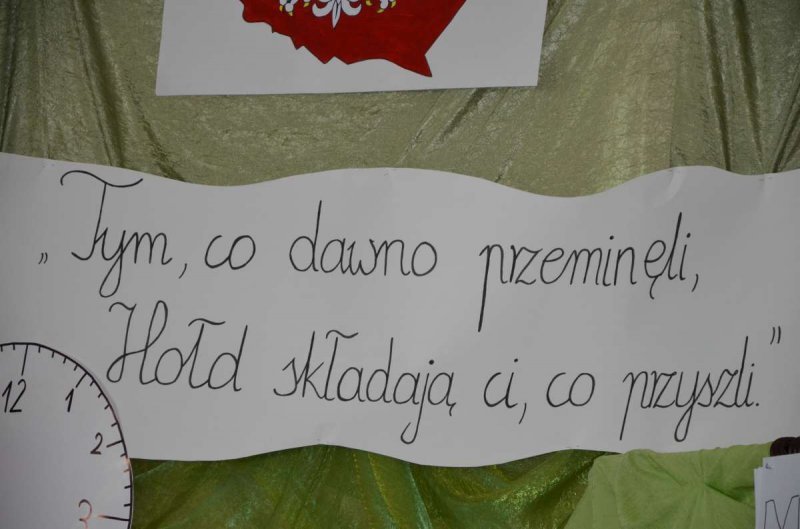 „Tym, co dawno przeminęli,
Hołd składają ci, co przyszli."
12
1
2
3
M